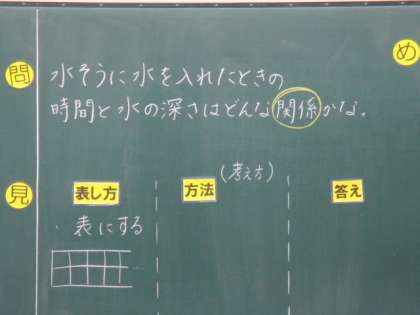 問
水そうに水を入れたときの
時間と水の深さはどんな関係かな。
め
見
表し方
方法
(考え方)
答え
・表にする